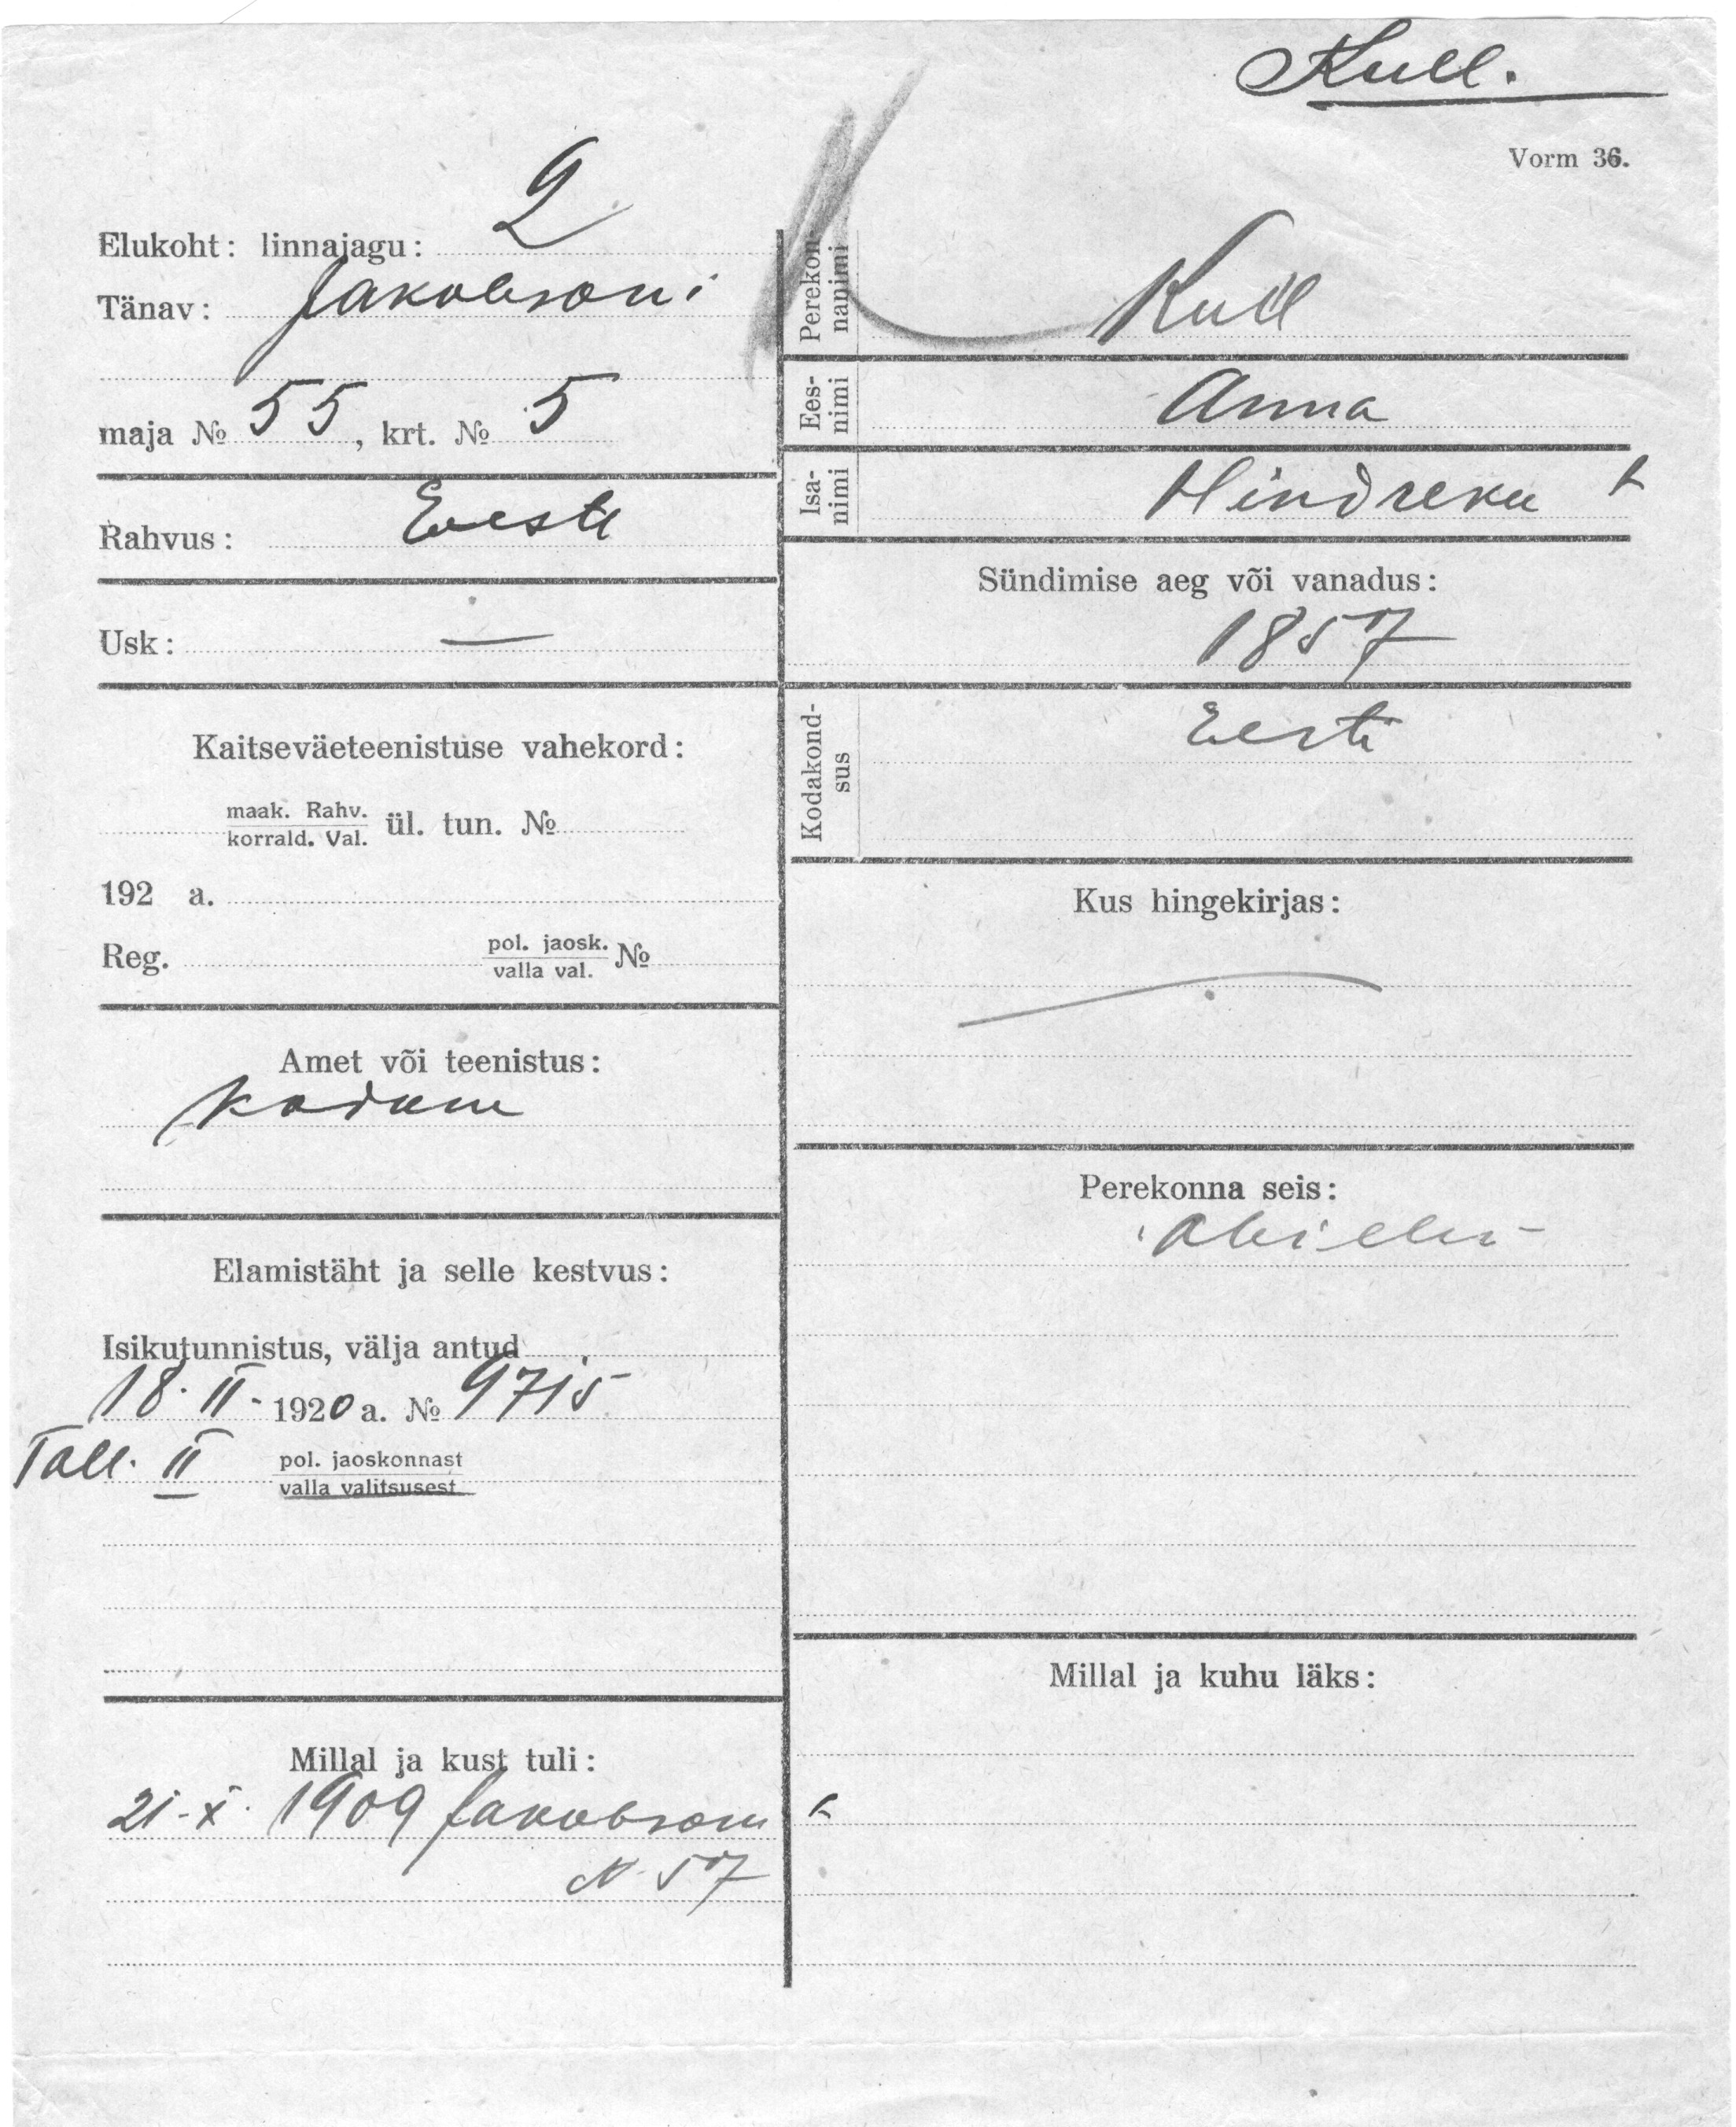 Kull.
Vorm 36.
Elukoht: linnajagu: 2
Tänav: Jakobsoni
maja № 55, krt. № 5
Rahvus: Eesti
Usk: —
Kaitseväeteenistuse vahekord:
maak. Rahv.
korrald. Val. ül. tun. №
192 a.
Reg. pol. jaosk.
valla val. №
Amet või teenistus:
kodune
Elamistäht ja selle kestvus:
Isikutunnistus, välja antud
18. II. 1920 a. № 9715
Tall. II pol. jaoskonnast
valla valitsusest
Millal ja kust tuli:
21-X. 1909 Jakobsoni t
N 57
Perekon-
nanimi Kull
Ees-
nimi Anna
Isa-
nimi Hindreku t
Sündimise aeg või vanadus:
1857
Kodakond-
sus Eesti
Kus hingekirjas:
Perekonna seis:
Abielus
Millal ja kuhu läks: